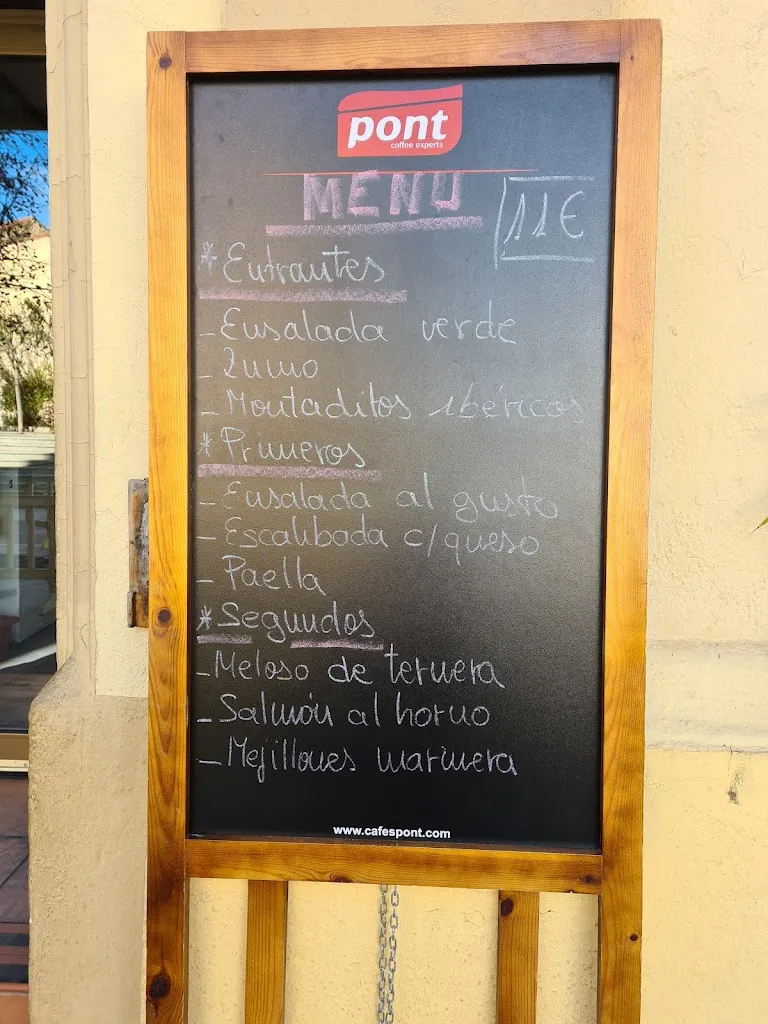 pont
coffee experts
MENÚ
11€
* Entrantes
- Ensalada verde
- Zumo
- Montaditos ibéricos
* Primeros
- Ensalada al gusto
- Escalibada c/queso
- Paella
* Segundos
- Meloso de ternera
- Salmón al horno
- Mejillones marinera
www.cafespont.com